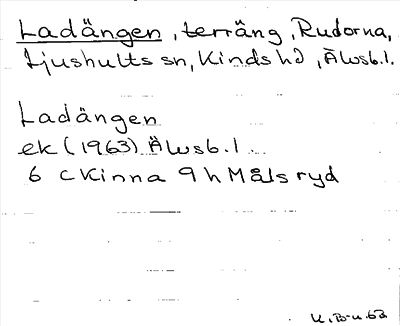 Ladängen, terräng, Rudorna,
Ljushults sn, Kinds hd, Älvsb.l.
Ladängen
ek (1963) Älvsb.l.
6 C Kinna 9 h Målsryd